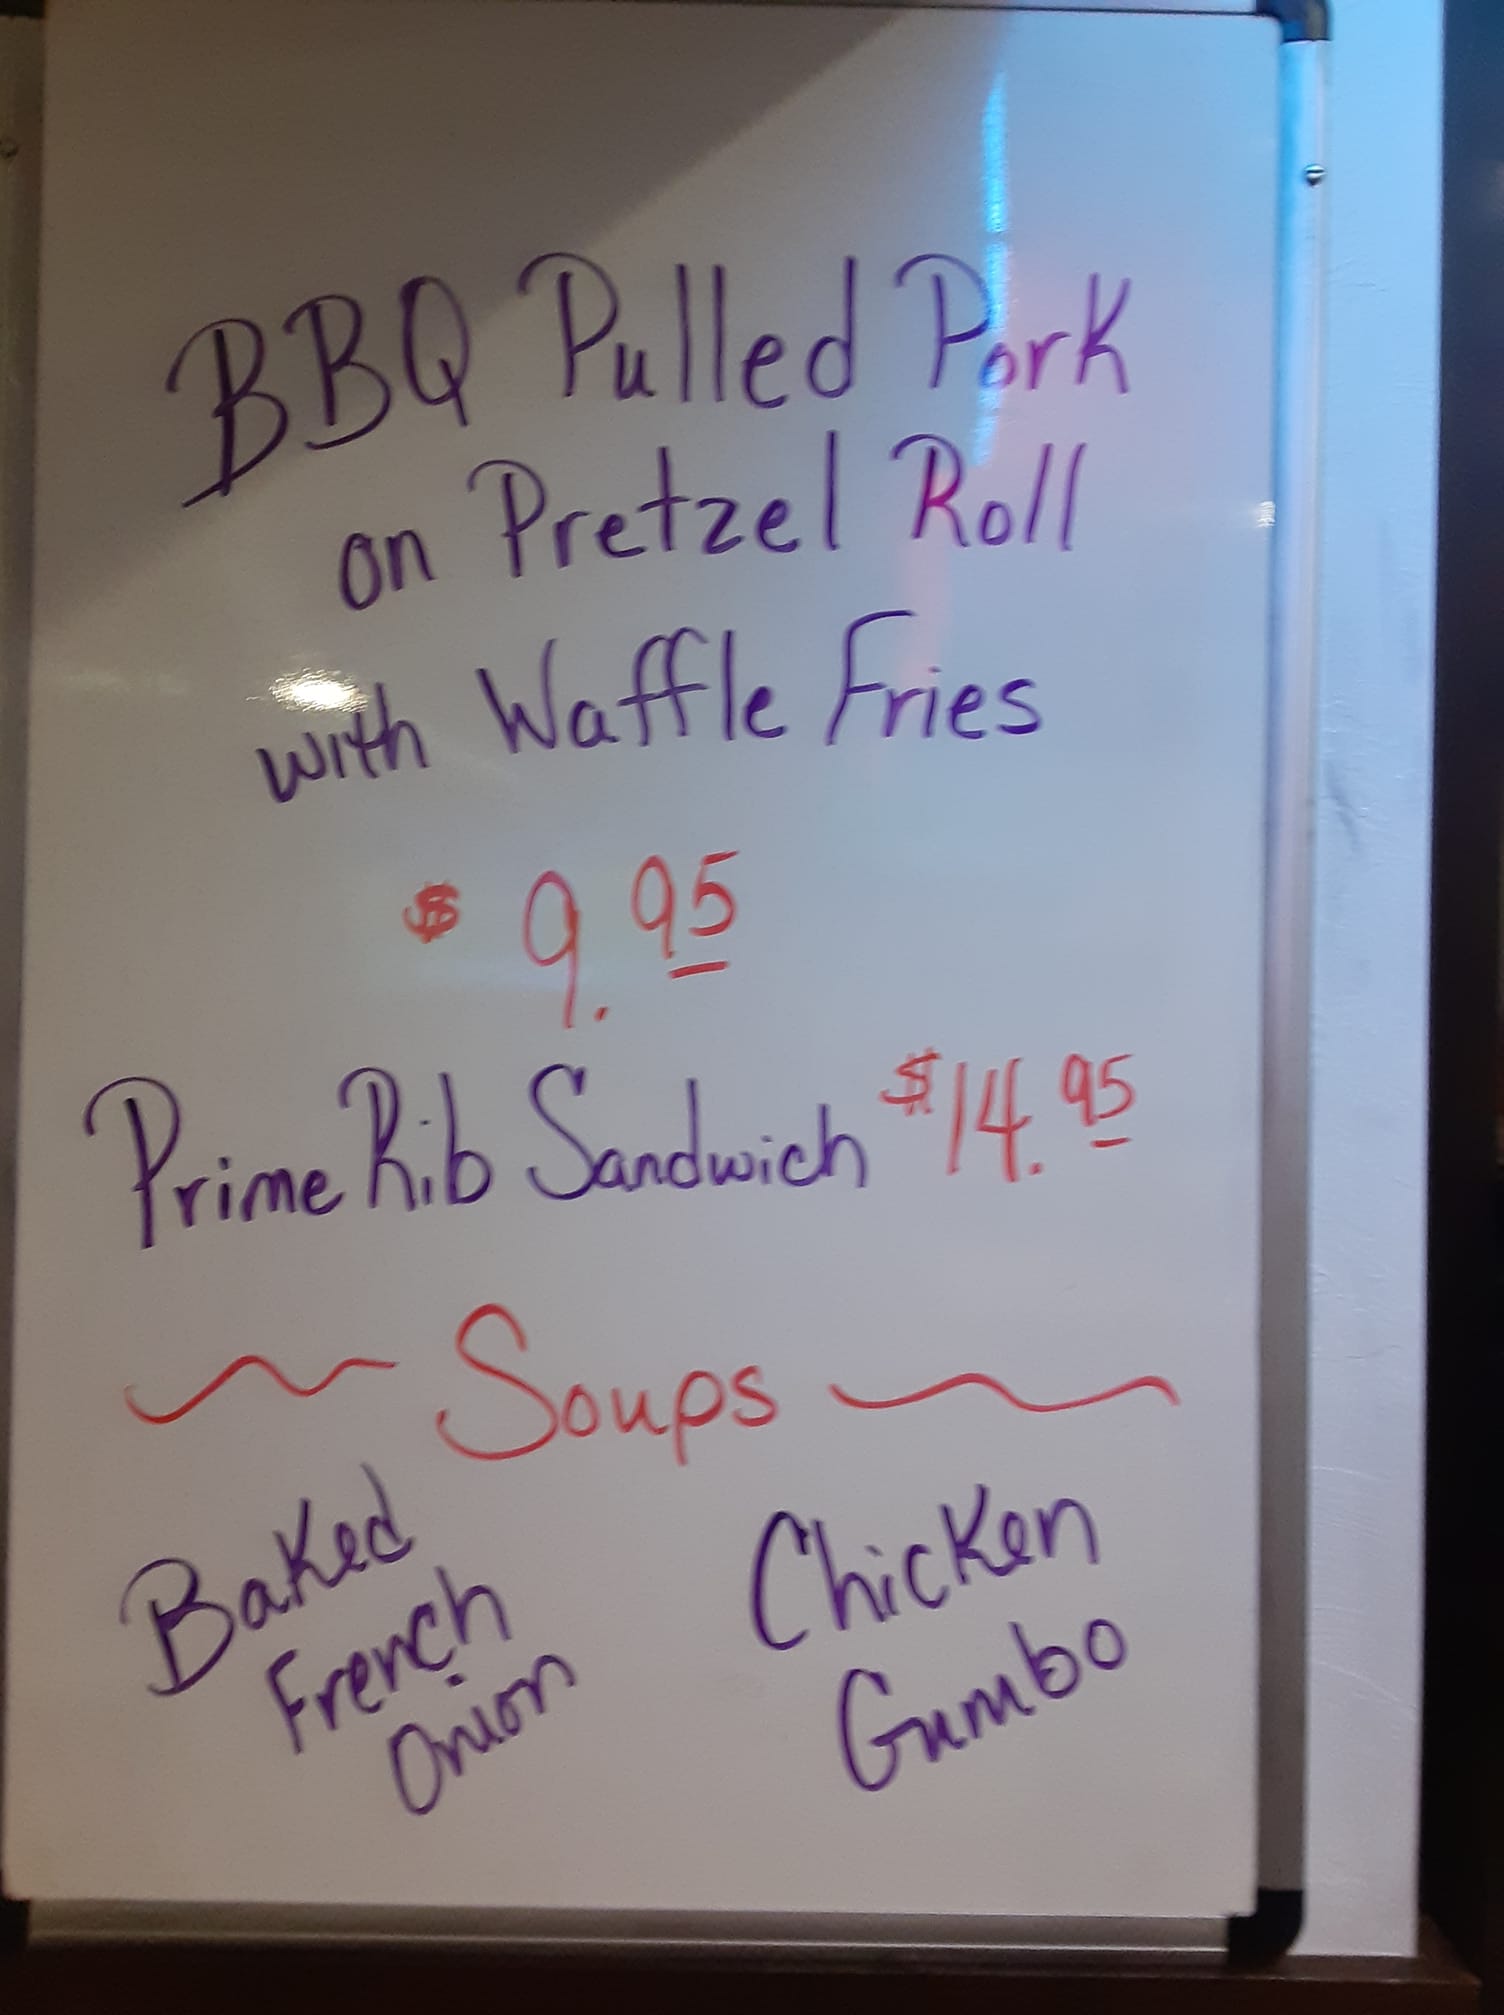 BBQ Pulled Pork
on Pretzel Roll
with Waffle Fries
$ 9.95
Prime Rib Sandwich $14.95
~ Soups ~
Baked
French
Onion
Chicken
Gumbo